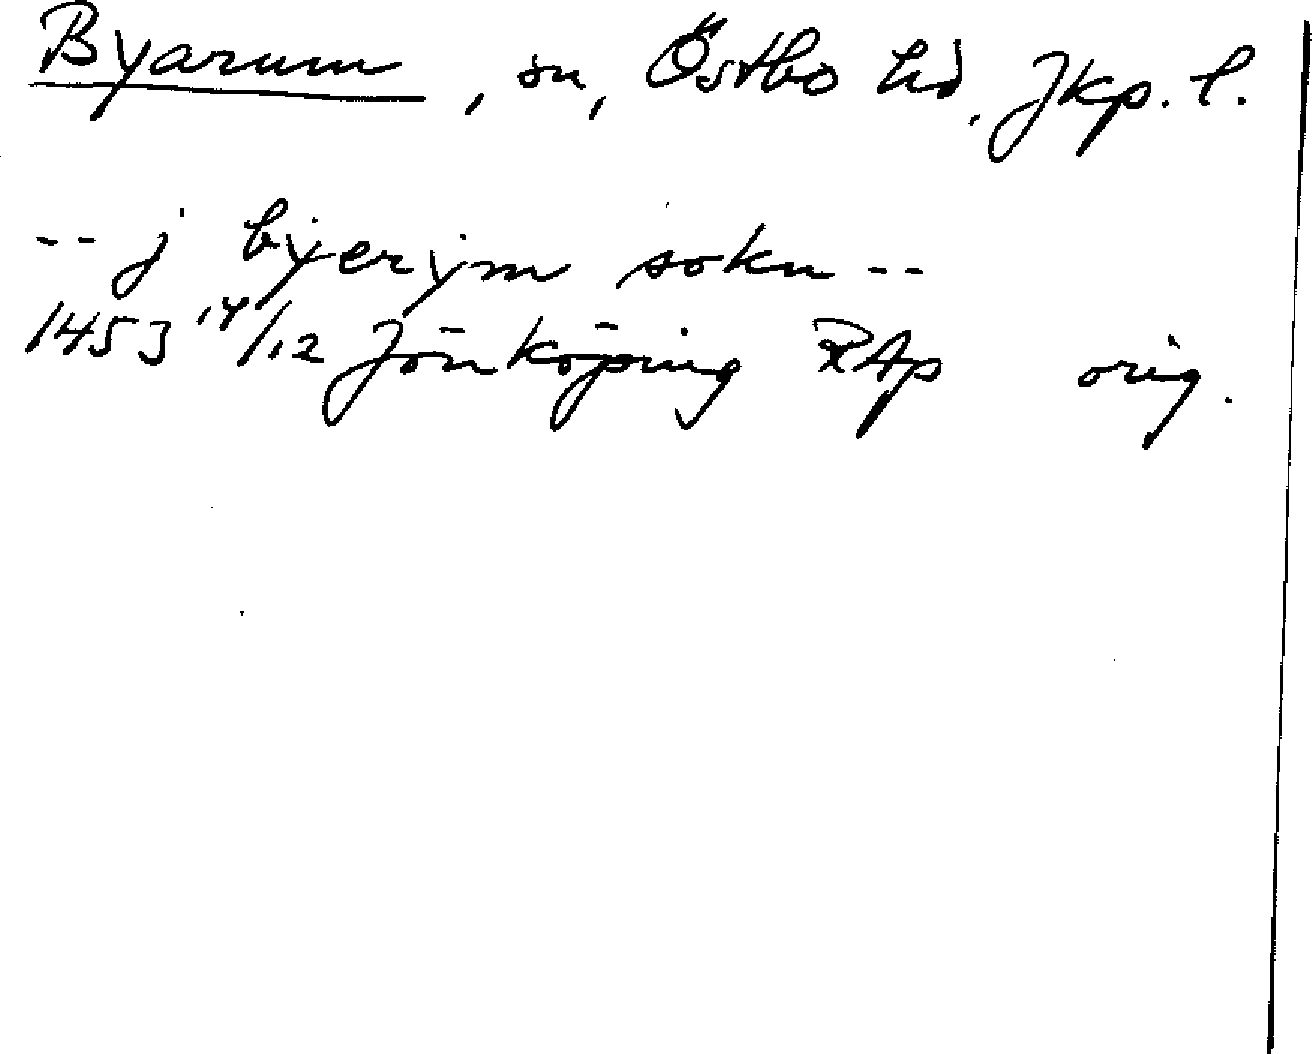 Byarum, sn, Östbo hd, Jkp. l.
-- j byerym sokn --
1453 14/12 Jönköping RAp orig.